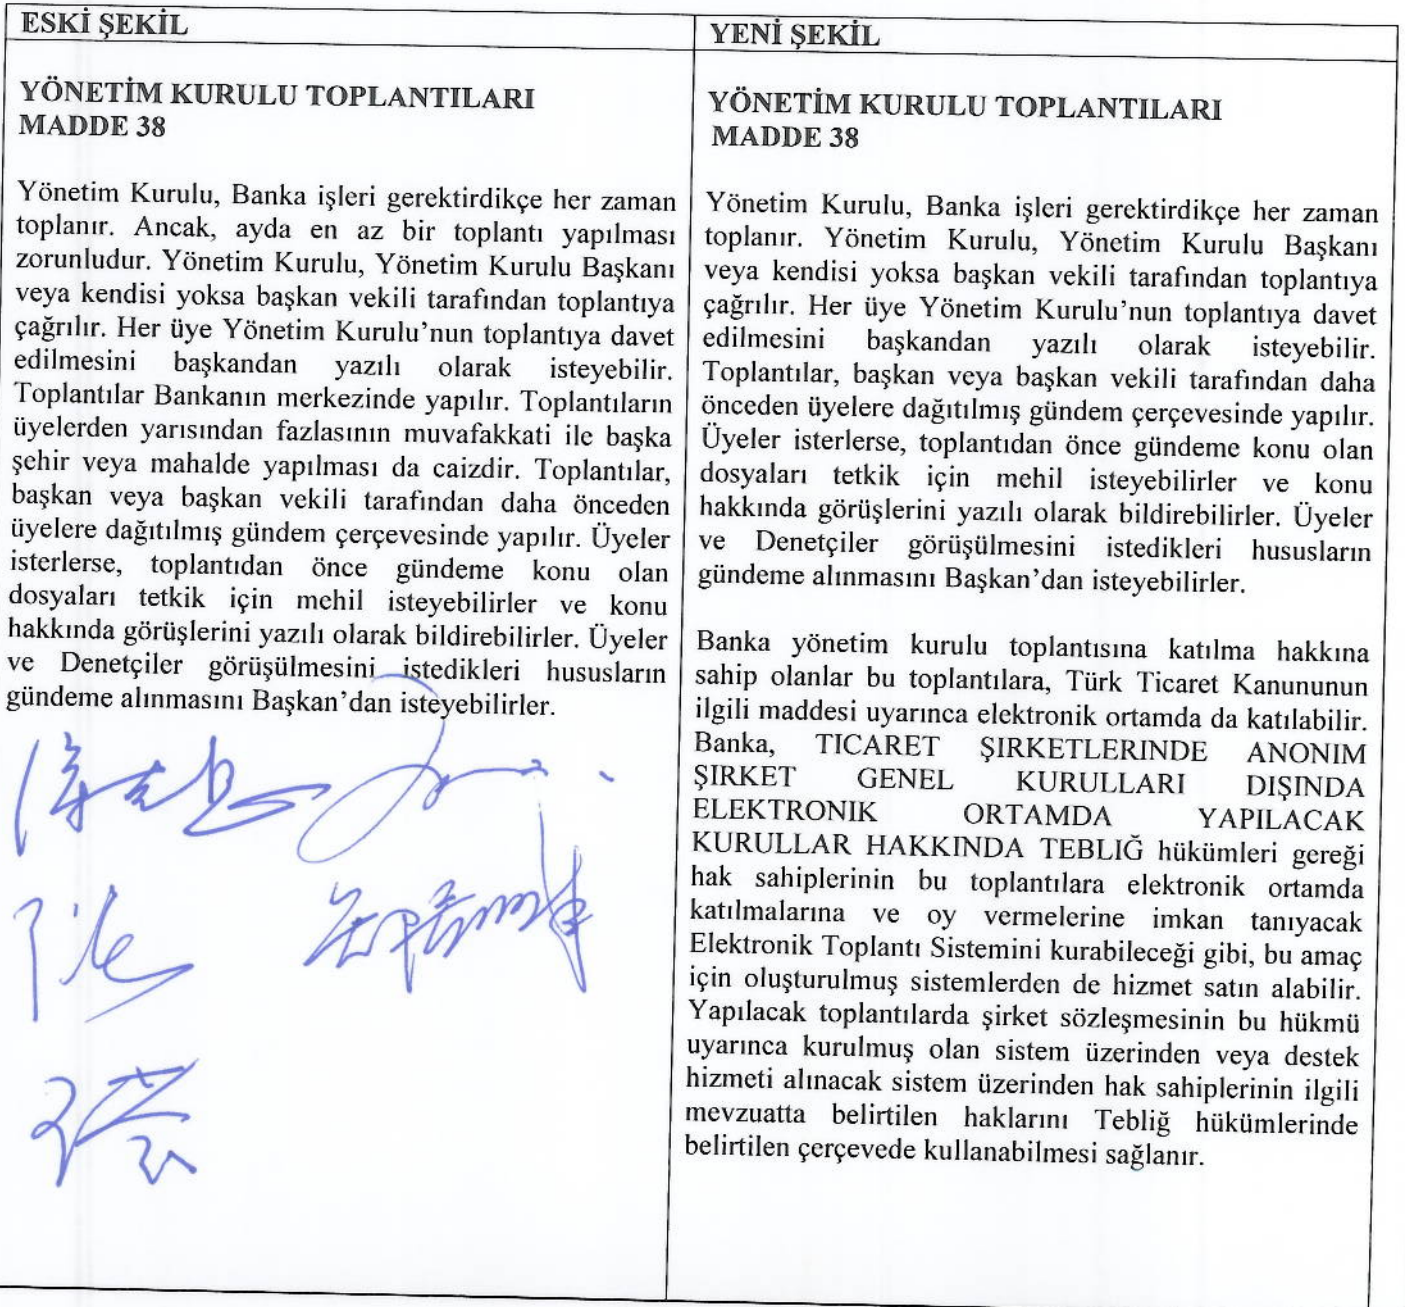 ESKİ ŞEKİL
YÖNETİM KURULU TOPLANTILARI
MADDE 38
Yönetim Kurulu, Banka işleri gerektirdikçe her zaman
toplanır. Ancak, ayda en az bir toplantı yapılması
zorunludur. Yönetim Kurulu, Yönetim Kurulu Başkanı
veya kendisi yoksa başkan vekili tarafından toplantıya
çağrılır. Her üye Yönetim Kurulu’nun toplantıya davet
edilmesini başkandan yazılı olarak isteyebilir.
Toplantılar Bankanın merkezinde yapılır. Toplantıların
üyelerden yarısından fazlasının muvafakkati ile başka
şehir veya mahalde yapılması da caizdir. Toplantılar,
başkan veya başkan vekili tarafından daha önceden
üyelere dağıtılmış gündem çerçevesinde yapılır. Üyeler
isterlerse, toplantıdan önce gündeme konu olan
dosyaları tetkik için mehil isteyebilirler ve konu
hakkında görüşlerini yazılı olarak bildirebilirler. Üyeler
ve Denetçiler görüşülmesini istedikleri hususların
gündeme alınmasını Başkan’dan isteyebilirler.
YENİ ŞEKİL
YÖNETİM KURULU TOPLANTILARI
MADDE 38
Yönetim Kurulu, Banka işleri gerektirdikçe her zaman
toplanır. Yönetim Kurulu, Yönetim Kurulu Başkanı
veya kendisi yoksa başkan vekili tarafından toplantıya
çağrılır. Her üye Yönetim Kurulu’nun toplantıya davet
edilmesini başkandan yazılı olarak isteyebilir.
Toplantılar, başkan veya başkan vekili tarafından daha
önceden üyelere dağıtılmış gündem çerçevesinde yapılır.
Üyeler isterlerse, toplantıdan önce gündeme konu olan
dosyaları tetkik için mehil isteyebilirler ve konu
hakkında görüşlerini yazılı olarak bildirebilirler. Üyeler
ve Denetçiler görüşülmesini istedikleri hususların
gündeme alınmasını Başkan’dan isteyebilirler.
Banka yönetim kurulu toplantısına katılma hakkına
sahip olanlar bu toplantılara, Türk Ticaret Kanununun
ilgili maddesi uyarınca elektronik ortamda da katılabilir.
Banka, TICARET ŞIRKETLERINDE ANONIM
ŞIRKET GENEL KURULLARI DIŞINDA
ELEKTRONIK ORTAMDA YAPILACAK
KURULLAR HAKKINDA TEBLIĞ hükümleri gereği
hak sahiplerinin bu toplantılara elektronik ortamda
katılmalarına ve oy vermelerine imkan tanıyacak
Elektronik Toplantı Sistemini kurabileceği gibi, bu amaç
için oluşturulmuş sistemlerden de hizmet satın alabilir.
Yapılacak toplantılarda şirket sözleşmesinin bu hükmü
uyarınca kurulmuş olan sistem üzerinden veya destek
hizmeti alınacak sistem üzerinden hak sahiplerinin ilgili
mevzuatta belirtilen haklarını Tebliğ hükümlerinde
belirtilen çerçevede kullanabilmesi sağlanır.